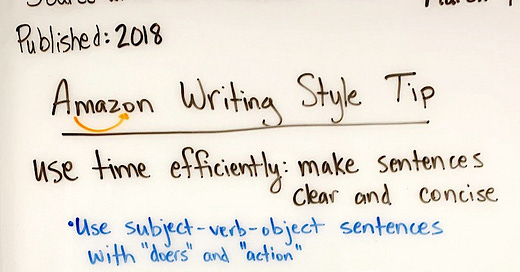 Published: 2018
Amazon Writing Style Tip
use time efficiently: make sentences
clear and concise
•Use subject-verb-object sentences
with "doers" and "action"